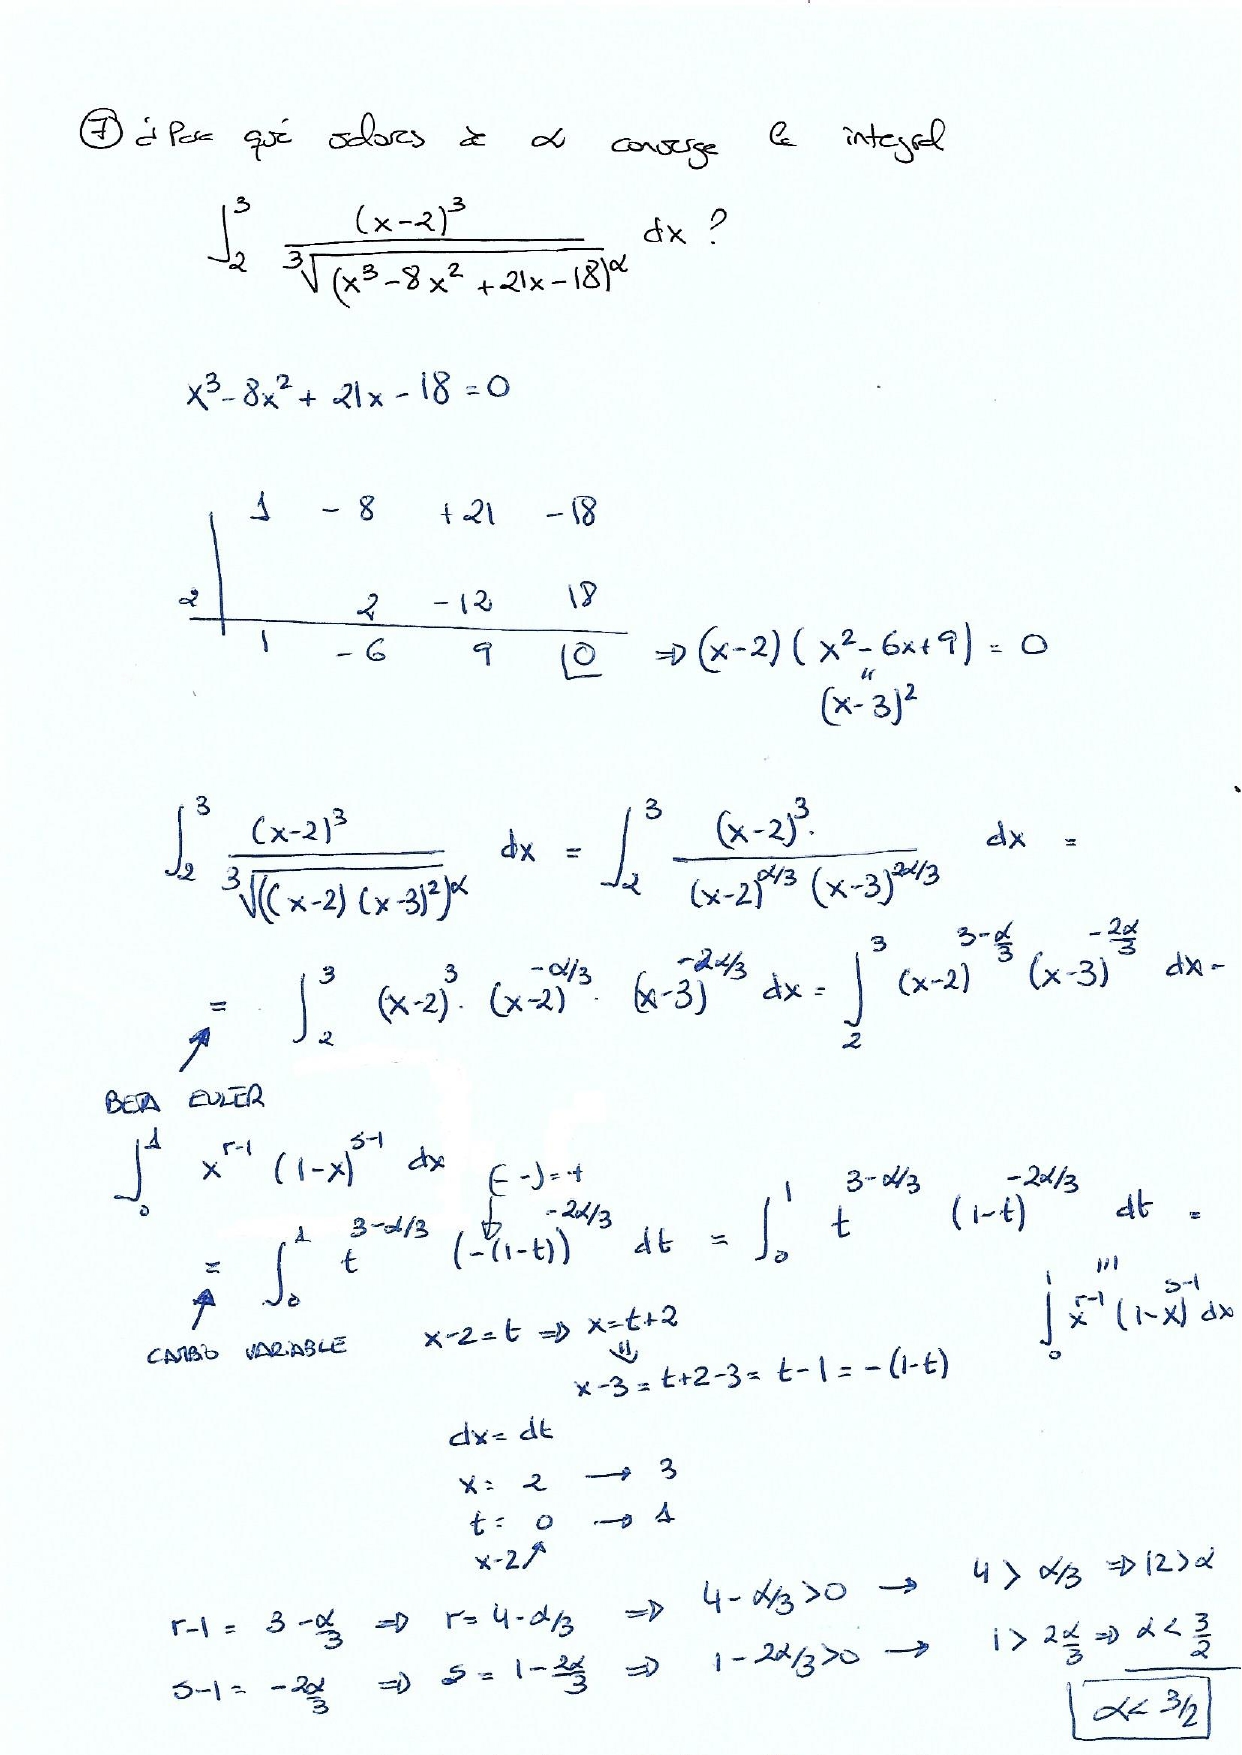 7 ¿Para qué valores de α converge la integral
∫₂³ (x-2)³ / ∛(x³-8x²+21x-18)^α dx ?
x³-8x²+21x-18=0
1 -8 +21 -18
2 2 -12 18
1 -6 9 0 ⇒ (x-2)(x²-6x+9)=0
"
(x-3)²
∫₂³ (x-2)³ / ∛((x-2)(x-3)²)^α dx = ∫₂³ (x-2)³· / (x-2)^(α/3) (x-3)^(2α/3) dx =
= ∫₂³ (x-2)³·(x-2)^(-α/3)·(x-3)^(-2α/3) dx = ∫₂³ (x-2)^(3-α/3) (x-3)^(-2α/3) dx -
BETA EULER
∫₀¹ x^(r-1) (1-x)^(s-1) dx
(-)=+
= ∫₀¹ t^(3-α/3) (-(1-t))^(-2α/3) dt = ∫₀¹ t^(3-α/3) (1-t)^(-2α/3) dt =
∫₀¹ x^(r-1) (1-x)^(s-1) dx
CAMBIO VARIABLE x-2=t ⇒ x=t+2
x-3=t+2-3=t-1=-(1-t)
dx=dt
x= 2 → 3
t= 0 → 1
x-2↑
r-1=3-α/3 ⇒ r=4-α/3 ⇒ 4-α/3>0 → 4>α/3 ⇒ 12>α
s-1=-2α/3 ⇒ s=1-2α/3 ⇒ 1-2α/3>0 → 1>2α/3 ⇒ α<3/2
α<3/2